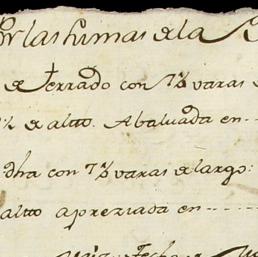 Por las sumas de la
de terrado con 7½ varas
½ de altto. Abaluada en
dha con 7½ varas de largo:
altto apreziada en